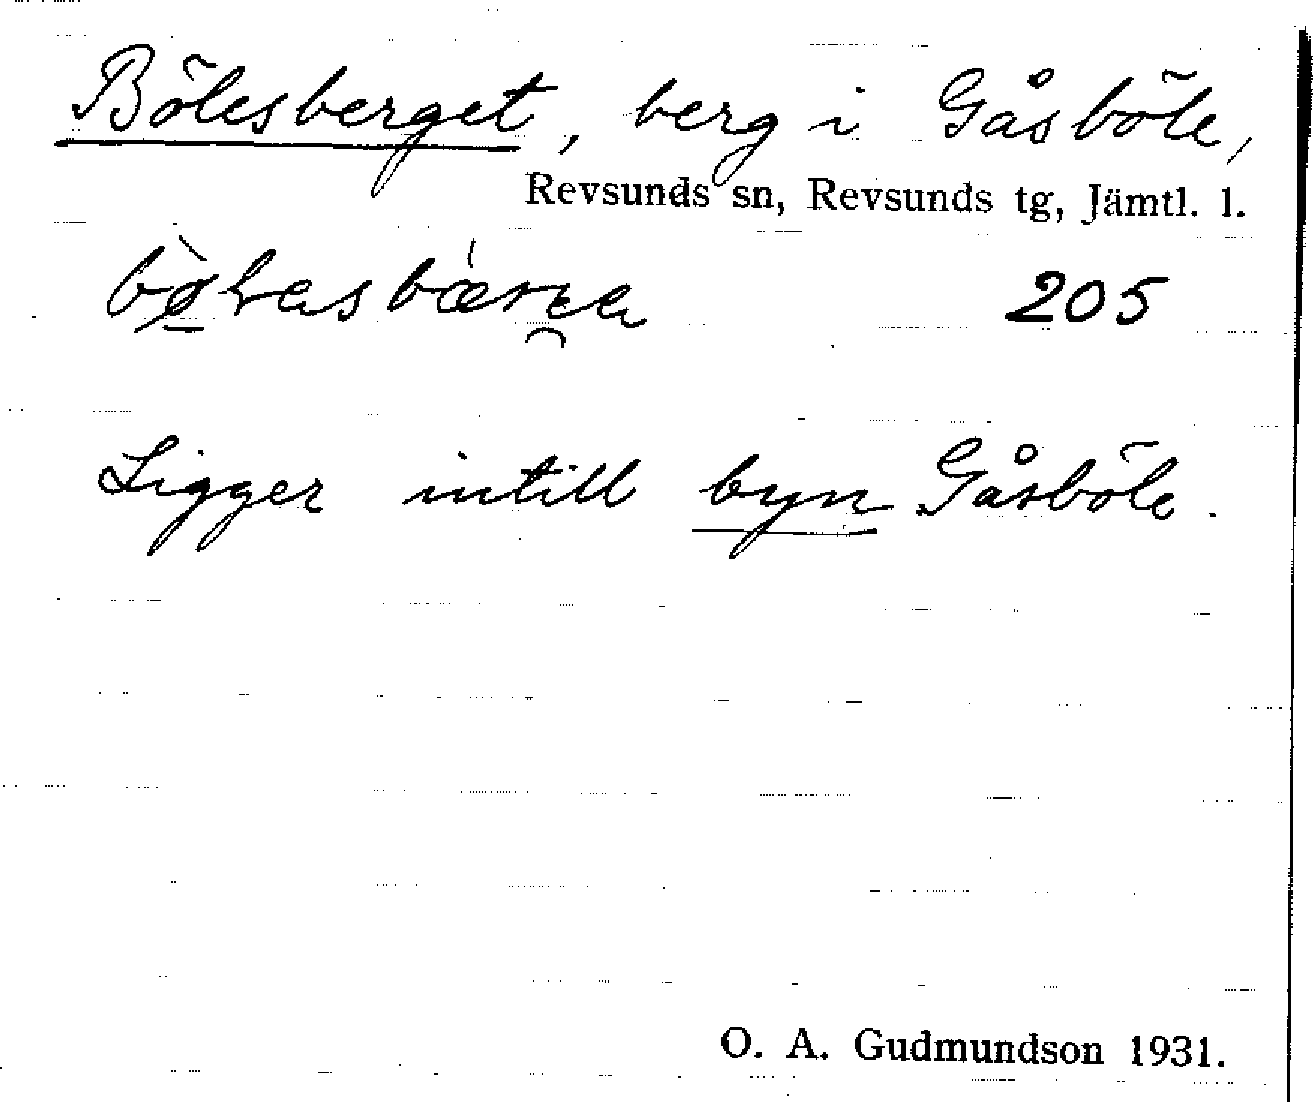 Bölesberget, berg i Gåsböle,
Revsunds sn, Revsunds tg, Jämtl. l.
205
Ligger intill byn Gåsböle.
O. A. Gudmundson 1931.